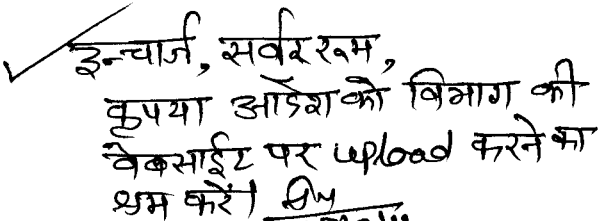 इन्चार्ज, सर्वर रूम,
कृपया आदेश को विभाग की
वेबसाईट पर upload करने का
श्रम करें।